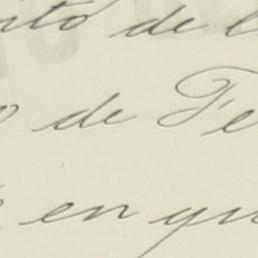 ito de l
o de Fe
en qu